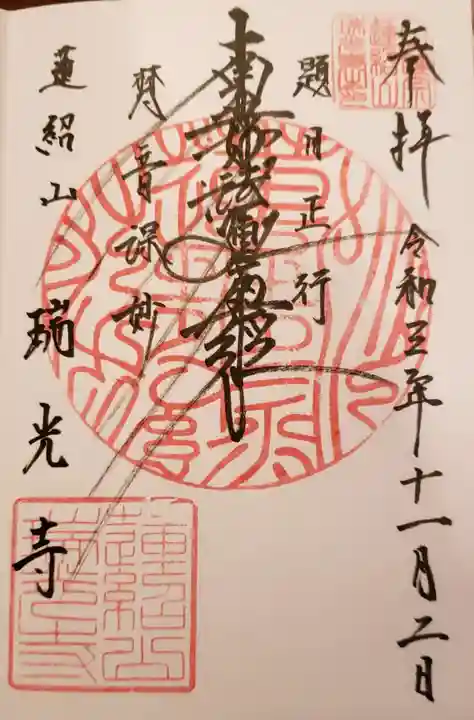 奉拝
令和三年十一月二日
題目正行
南無妙法蓮華経
梵音深妙
蓮紹山
瑞光寺